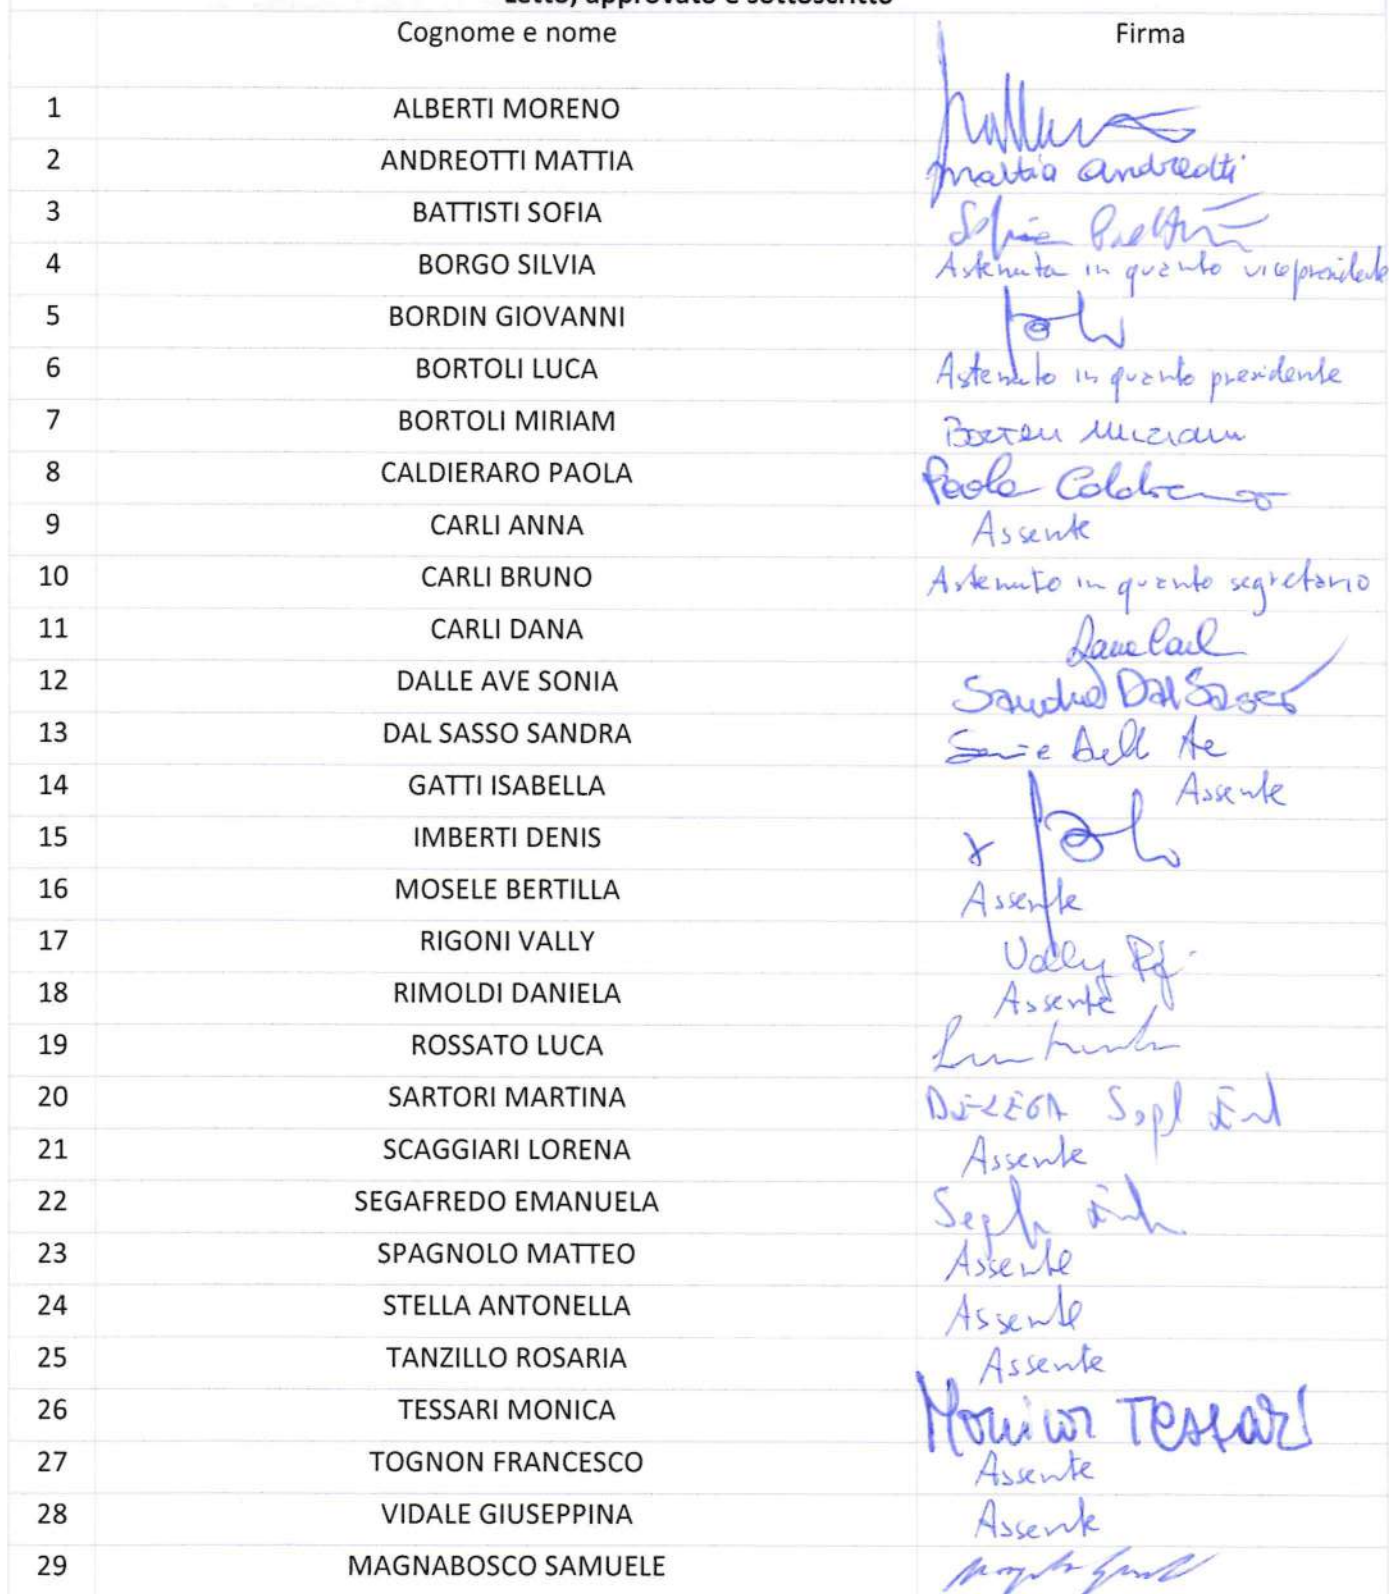 Letto, approvato e sottoscritto
Cognome e nome Firma
1 ALBERTI MORENO
2 ANDREOTTI MATTIA Mattia Andreotti
3 BATTISTI SOFIA Sofia
4 BORGO SILVIA Astenuta in quanto vicepresidente
5 BORDIN GIOVANNI
6 BORTOLI LUCA Astenuto in quanto presidente
7 BORTOLI MIRIAM Bortoli Miriam
8 CALDIERARO PAOLA Paola
9 CARLI ANNA Assente
10 CARLI BRUNO Astenuto in quanto segretario
11 CARLI DANA Dana Carli
12 DALLE AVE SONIA Sandra Dal Sasso
13 DAL SASSO SANDRA
14 GATTI ISABELLA Assente
15 IMBERTI DENIS x
16 MOSELE BERTILLA Assente
17 RIGONI VALLY Vally
18 RIMOLDI DANIELA Assente
19 ROSSATO LUCA
20 SARTORI MARTINA DELEGA
21 SCAGGIARI LORENA Assente
22 SEGAFREDO EMANUELA
23 SPAGNOLO MATTEO Assente
24 STELLA ANTONELLA Assente
25 TANZILLO ROSARIA Assente
26 TESSARI MONICA Monica Tessari
27 TOGNON FRANCESCO Assente
28 VIDALE GIUSEPPINA Assente
29 MAGNABOSCO SAMUELE